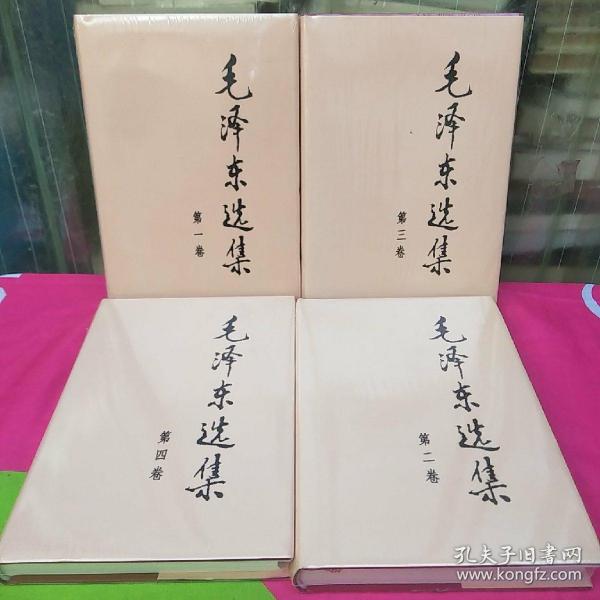 毛泽东选集
第一卷
毛泽东选集
第三卷
毛泽东选集
第四卷
毛泽东选集
第二卷
孔夫子旧書网
www.kongfz.com